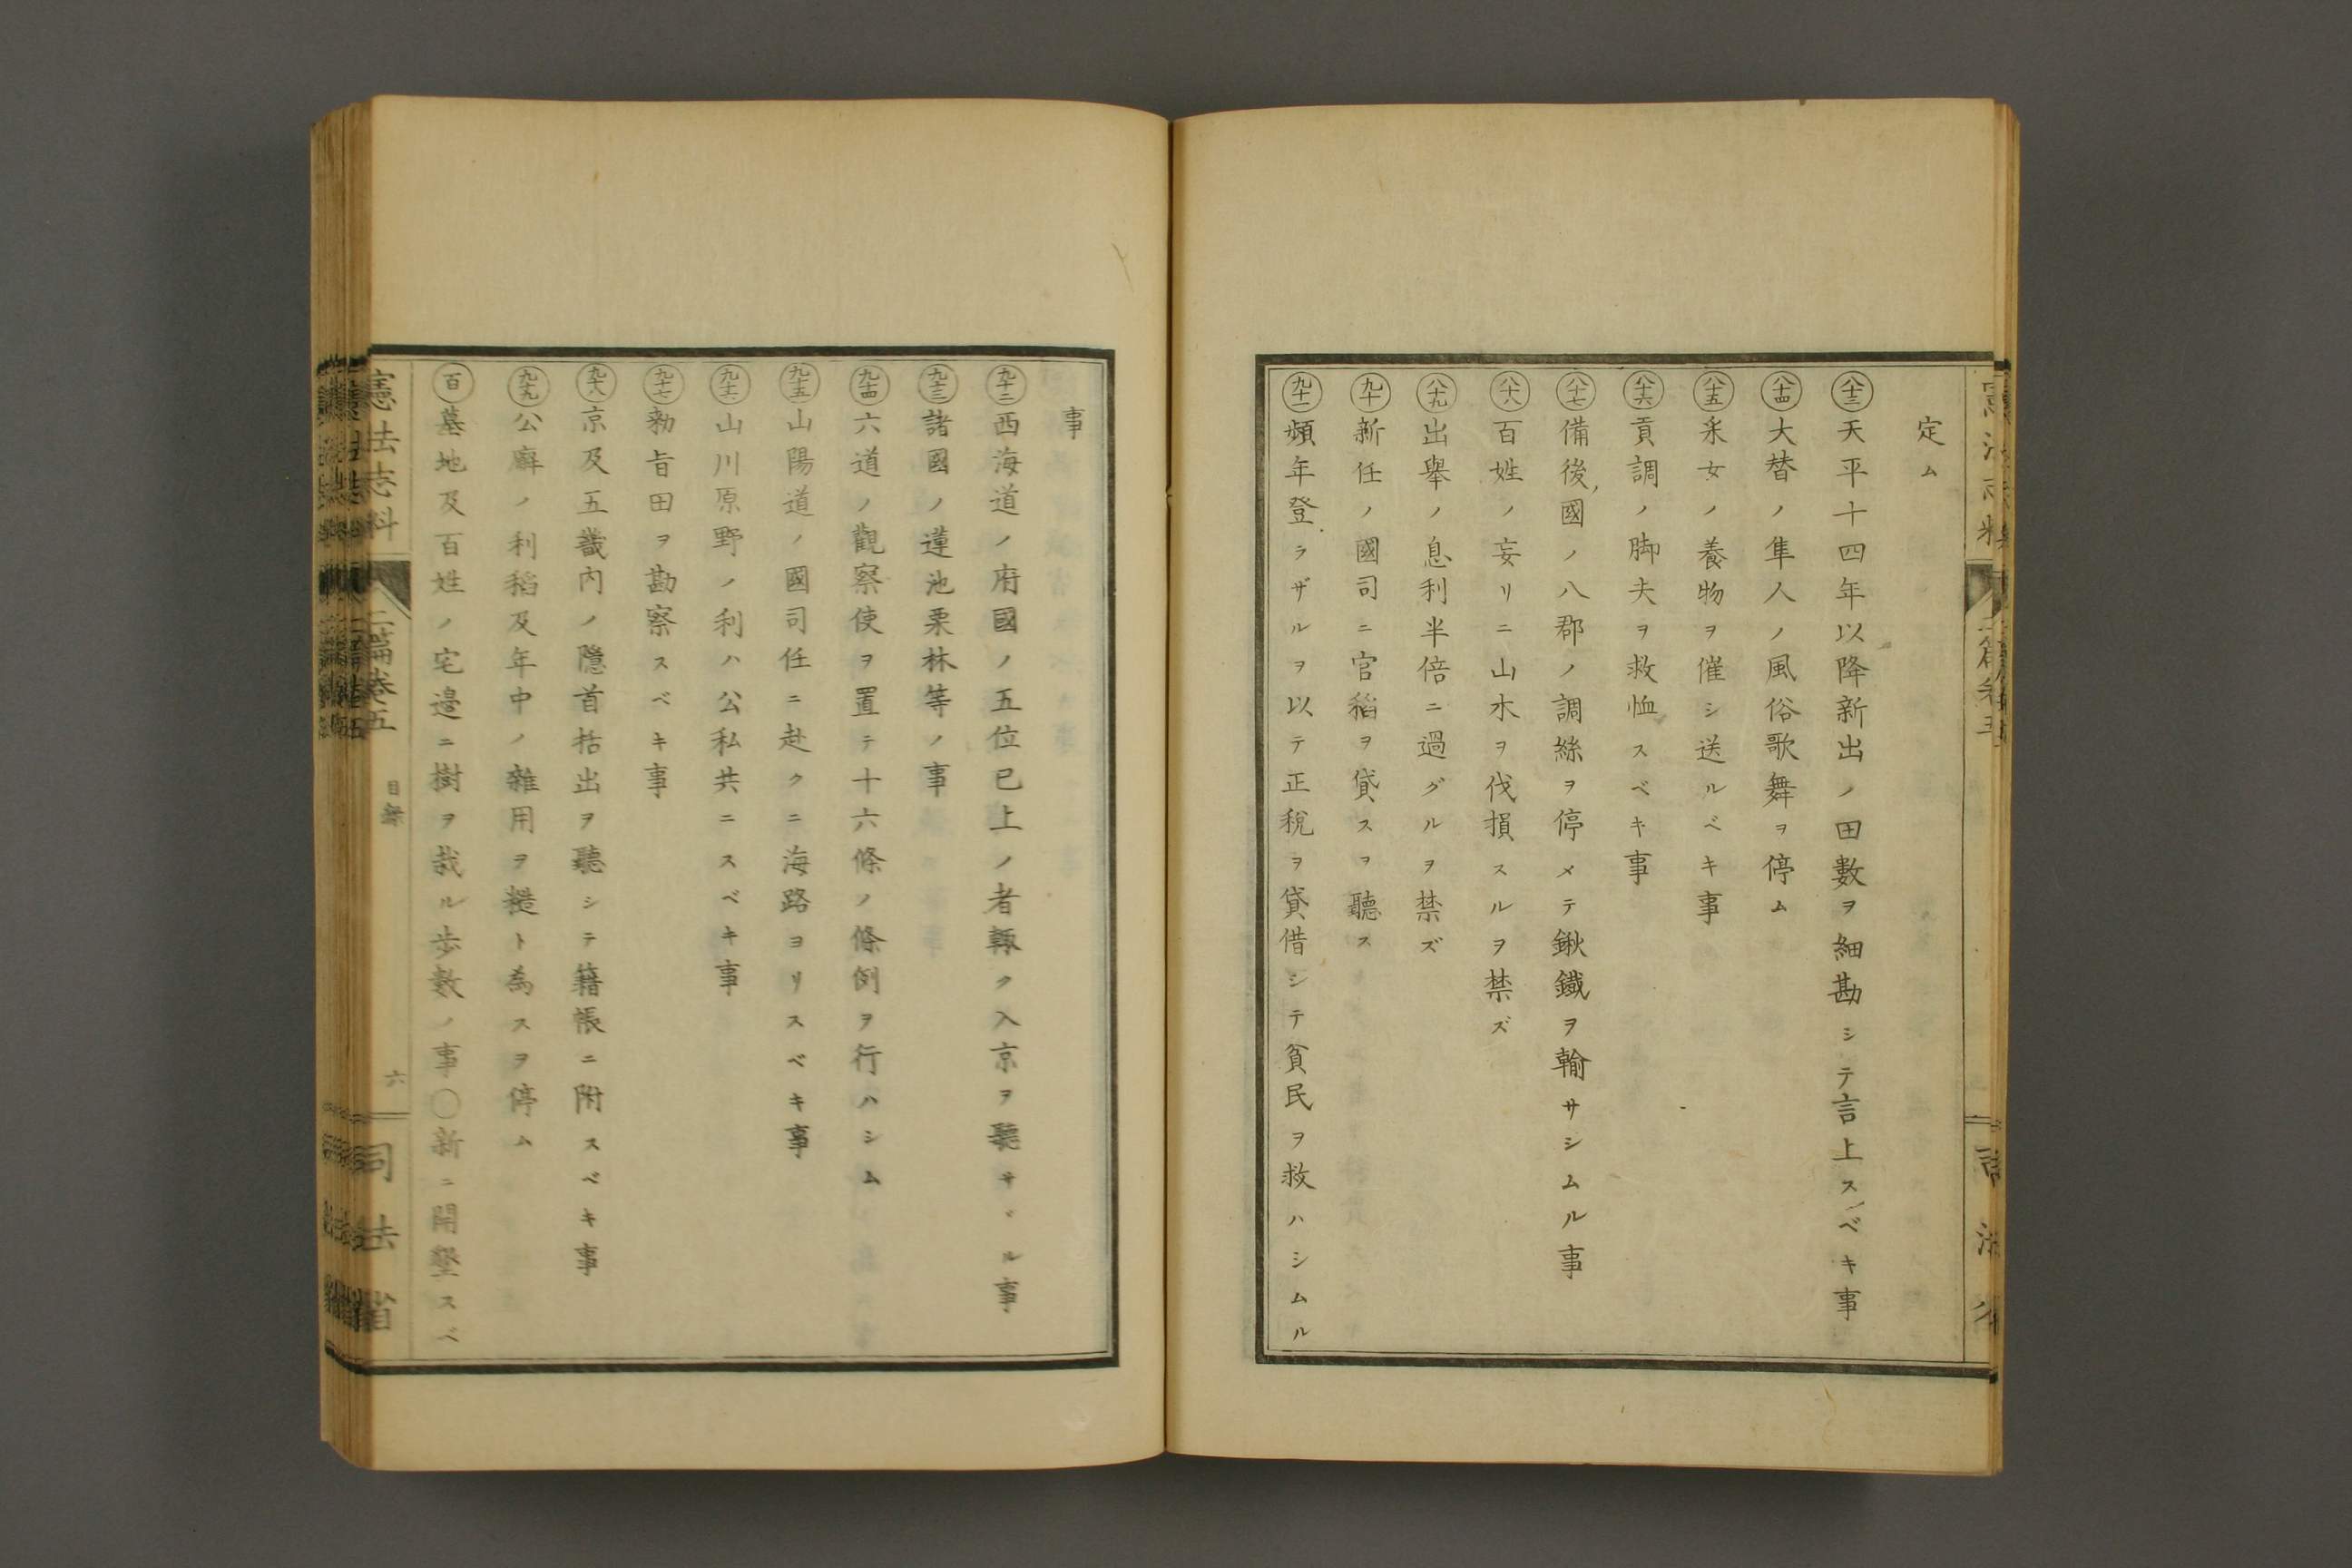 定ム
八十三 天平十四年以降新出ノ田數ヲ細勘シテ言上スベキ事
八十四 大替ノ隼人ノ風俗歌舞ヲ停ム
八十五 采女ノ養物ヲ催シ送ルベキ事
八十六 貢調ノ脚夫ヲ救恤スベキ事
八十七 備後國ノ八郡ノ調絲ヲ停メテ鍬鐵ヲ輸サシムル事
八十八 百姓ノ妄リニ山水ヲ伐損スルヲ禁ズ
八十九 出舉ノ息利半倍ニ過グルヲ禁ズ
九十 新任ノ國司ニ官稻ヲ貸スヲ聽ス
九十一 頻年登ラザルヲ以テ正稅ヲ貸借シテ貧民ヲ救ハシムル
事
九十二 西海道ノ府國ノ五位已上ノ者輙ク入京ヲ聽サヾル事
九十三 諸國ノ蓮池栗林等ノ事
九十四 六道ノ觀察使ヲ置テ十六條ノ條例ヲ行ハシム
九十五 山陽道ノ國司任ニ赴クニ海路ヨリスベキ事
九十六 山川原野ノ利ハ公私共ニスベキ事
九十七 勅旨田ヲ勘察スベキ事
九十八 京及五畿內ノ隱首括出ヲ聽シテ籍帳ニ附スベキ事
九十九 公廨ノ利稻及年中ノ雜用ヲ糙ト爲スヲ停ム
百 墓地及百姓ノ宅邊ニ樹ヲ栽ル步數ノ事○新ニ開墾スベ
憲法志料 二篇卷五 目錄 六 司法省